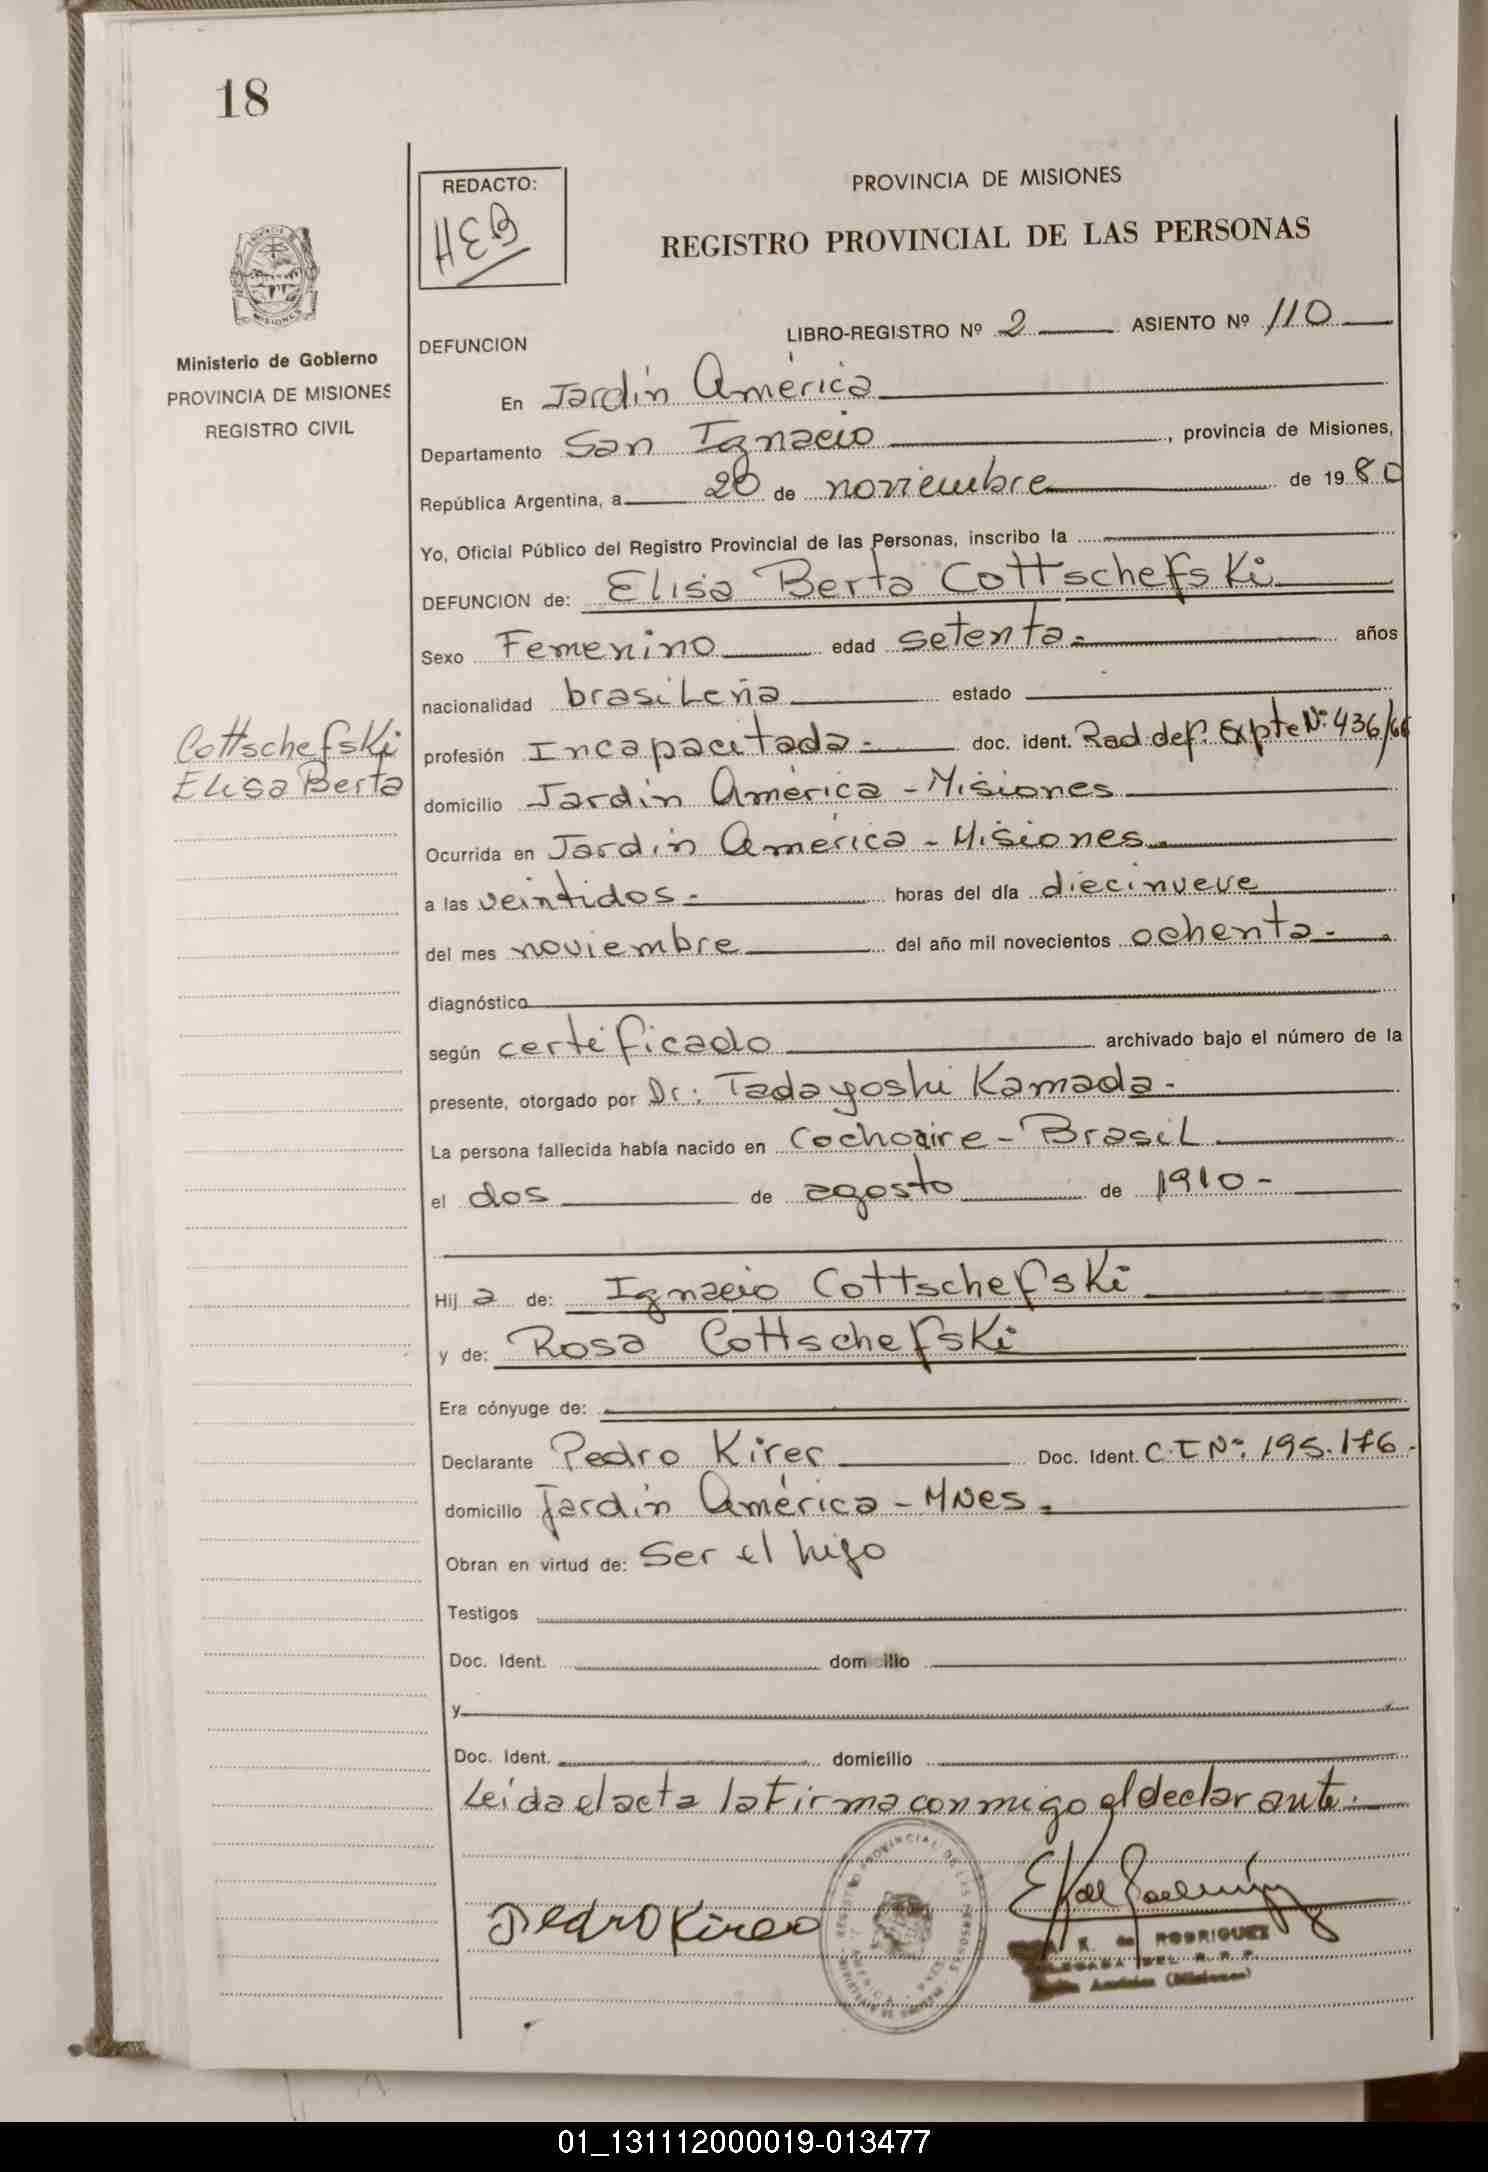 18
REDACTO:
HEB
PROVINCIA DE MISIONES
REGISTRO PROVINCIAL DE LAS PERSONAS
Ministerio de Gobierno
PROVINCIA DE MISIONES
REGISTRO CIVIL
DEFUNCION LIBRO-REGISTRO Nº 2 ASIENTO Nº 110
En Jardín América
Departamento San Ignacio, provincia de Misiones,
República Argentina, a 20 de noviembre de 1980
Yo, Oficial Público del Registro Provincial de las Personas, inscribo la
DEFUNCION de: Elisa Berta Cottschefski
Sexo Femenino edad setenta.- años
nacionalidad brasileña estado
Cottschefski
Elisa Berta
profesión Incapacitada.- doc. ident. Rad. def. Expte Nº 436/66
domicilio Jardín América - Misiones
Ocurrida en Jardín América - Misiones
a las veintidos.- horas del día diecinueve
del mes noviembre del año mil novecientos ochenta.-
diagnóstico
según certificado archivado bajo el número de la
presente, otorgado por Dr: Tadayoshi Kamada.-
La persona fallecida había nacido en Cochoaire - Brasil
el dos de agosto de 1910-
Hij a de: Ignacio Cottschefski
y de: Rosa Cottschefski
Era cónyuge de:
Declarante Pedro Kires Doc. Ident. C.I Nº: 195.176.-
domicilio Jardín América - Mnes.
Obran en virtud de: Ser el hijo
Testigos
Doc. Ident. domicilio
y
Doc. Ident. domicilio
Leída el acta la firma conmigo el declarante.-
Pedro Kires
K. de RODRIGUEZ
DEL R. P. P.
América (Misiones)
01_131112000019-013477